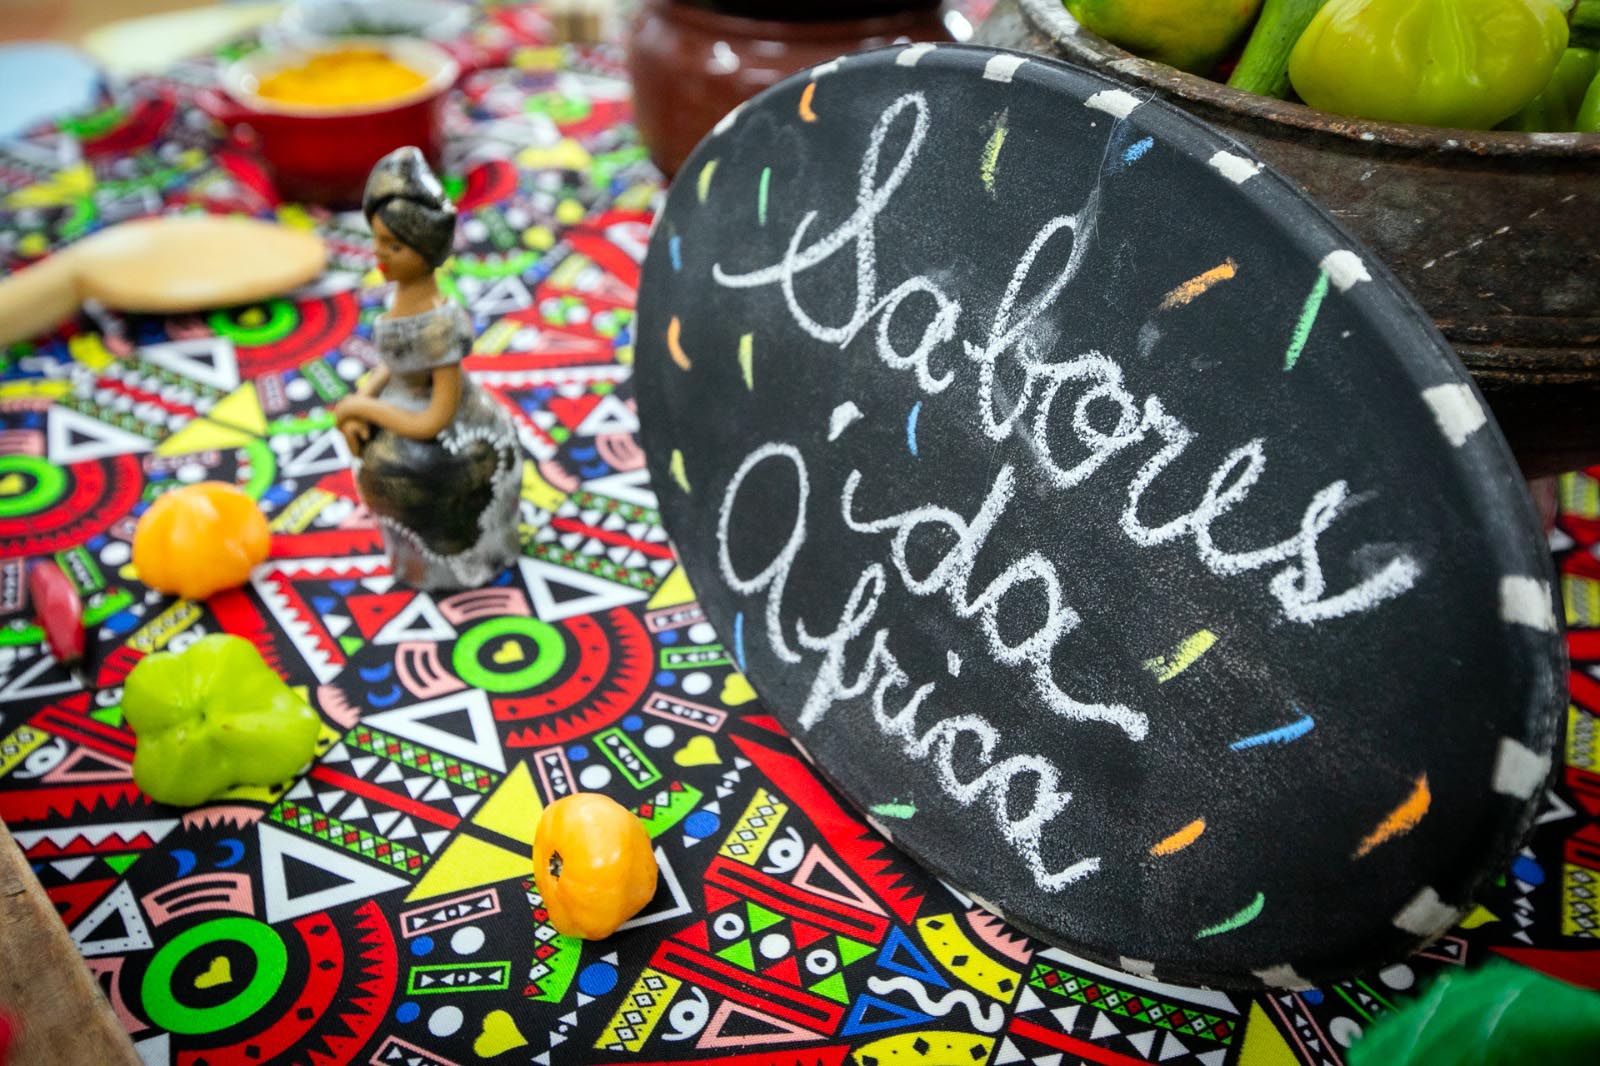 Sabores
da
África